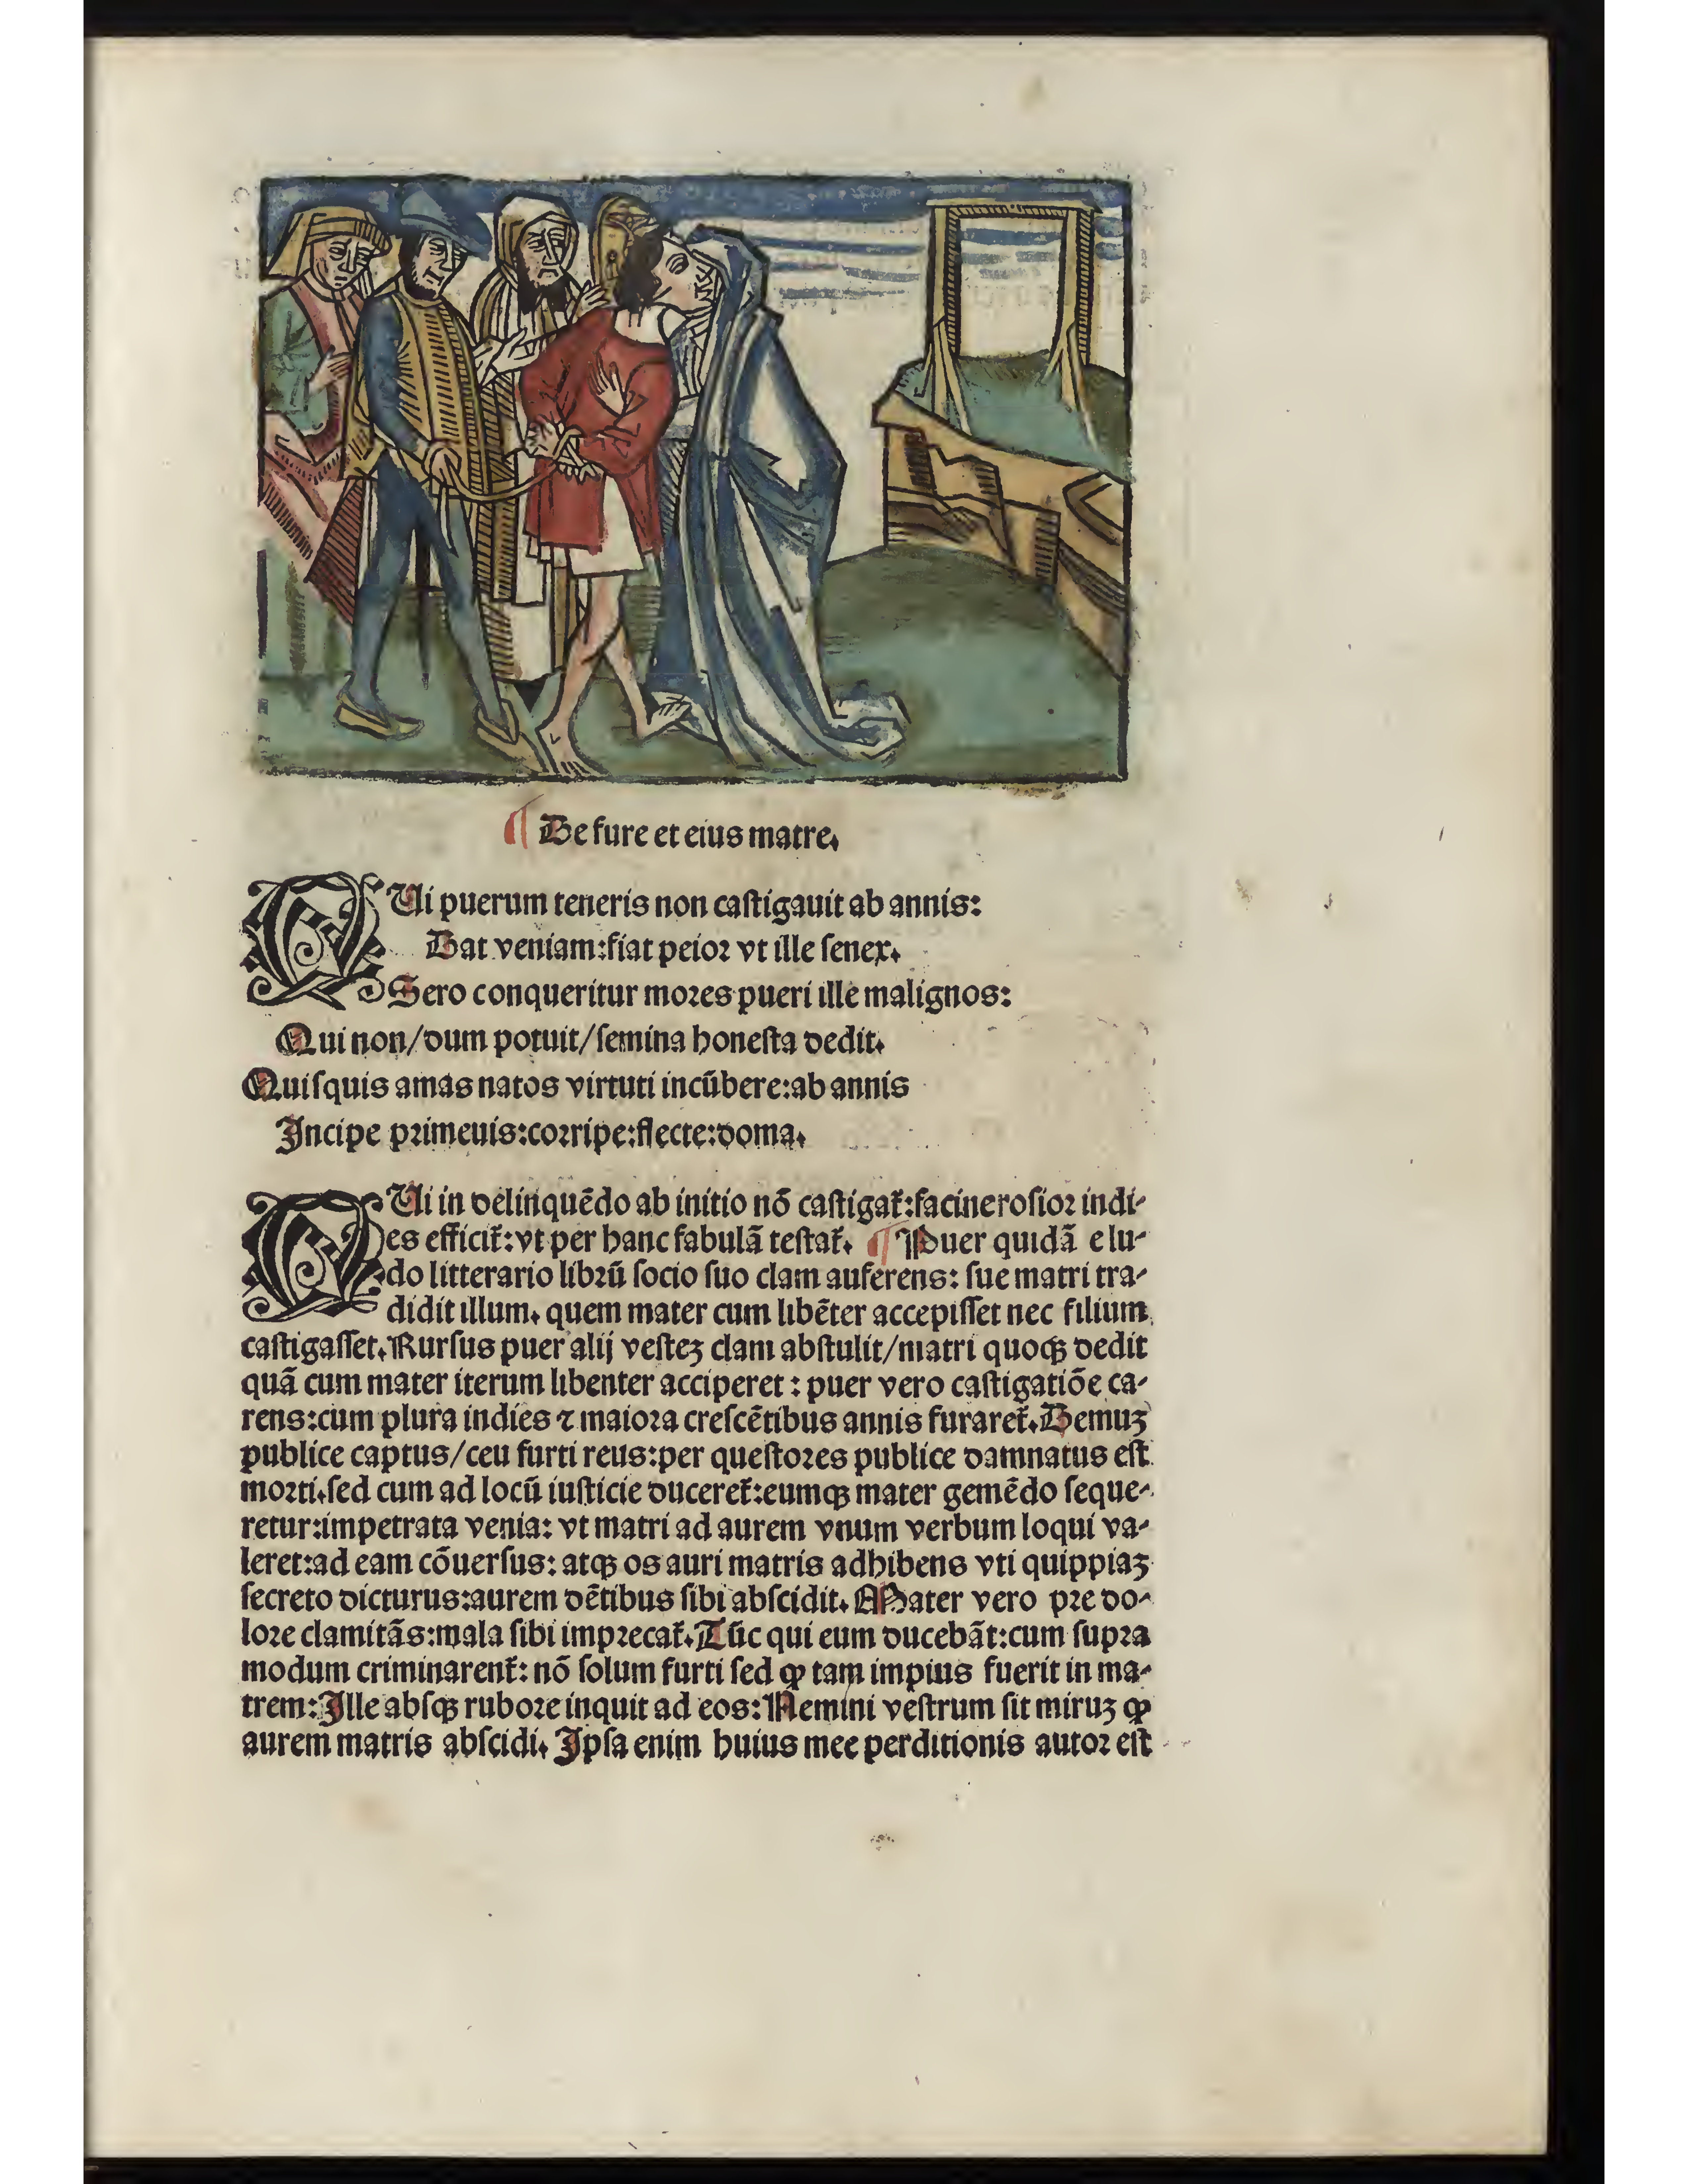 ¶ De fure et eius matre.
QUi puerum teneris non caſtigauit ab annis:
Dat veniam:fiat peioꝛ vt ille ſenex.
Sero conqueritur moꝛes pueri ille malignos:
Qui non/dum potuit/ſemina honeſta dedit.
Quiſquis amas natos virtuti incūbere:ab annis
Incipe pꝛimeuis:coꝛripe:flecte:doma.
QUi in delinquēdo ab initio nō caſtigat̃:facineroſioꝛ indi⸗
es efficit̃:vt per hanc fabulā teſtat̃. ¶ Puer quidā e lu⸗
do litterario libꝛū ſocio ſuo clam auferens: ſue matri tra⸗
didit illum. quem mater cum libēter accepiſſet nec filium
caſtigaſſet. Rurſus puer alij veſteꝫ clam abſtulit/matri quoqꝫ dedit
quā cum mater iterum libenter acciperet : puer vero caſtigatiōe ca⸗
rens:cum plura indies ⁊ maioꝛa creſcētibus annis furaret̃. Demuꝫ
publice captus/ceu furti reus:per queſtoꝛes publice damnatus eſt
moꝛti.ſed cum ad locū iuſticie duceret̃:eumqꝫ mater gemēdo ſeque⸗
retur:impetrata venia: vt matri ad aurem vnum verbum loqui va⸗
leret:ad eam cōuerſus: atqꝫ os auri matris adhibens vti quippiaꝫ
ſecreto dicturus:aurem dētibus ſibi abſcidit. Mater vero pꝛe do⸗
loꝛe clamitās:mala ſibi impꝛecat̃. Tūc qui eum ducebāt:cum ſupꝛa
modum criminarent̃: nō ſolum furti ſed ꝙ tam impius fuerit in ma⸗
trem: Ille abſqꝫ ruboꝛe inquit ad eos: Nemini veſtrum ſit miruꝫ ꝙ
aurem matris abſcidi. Ipſa enim huius mee perditionis autoꝛ eſt